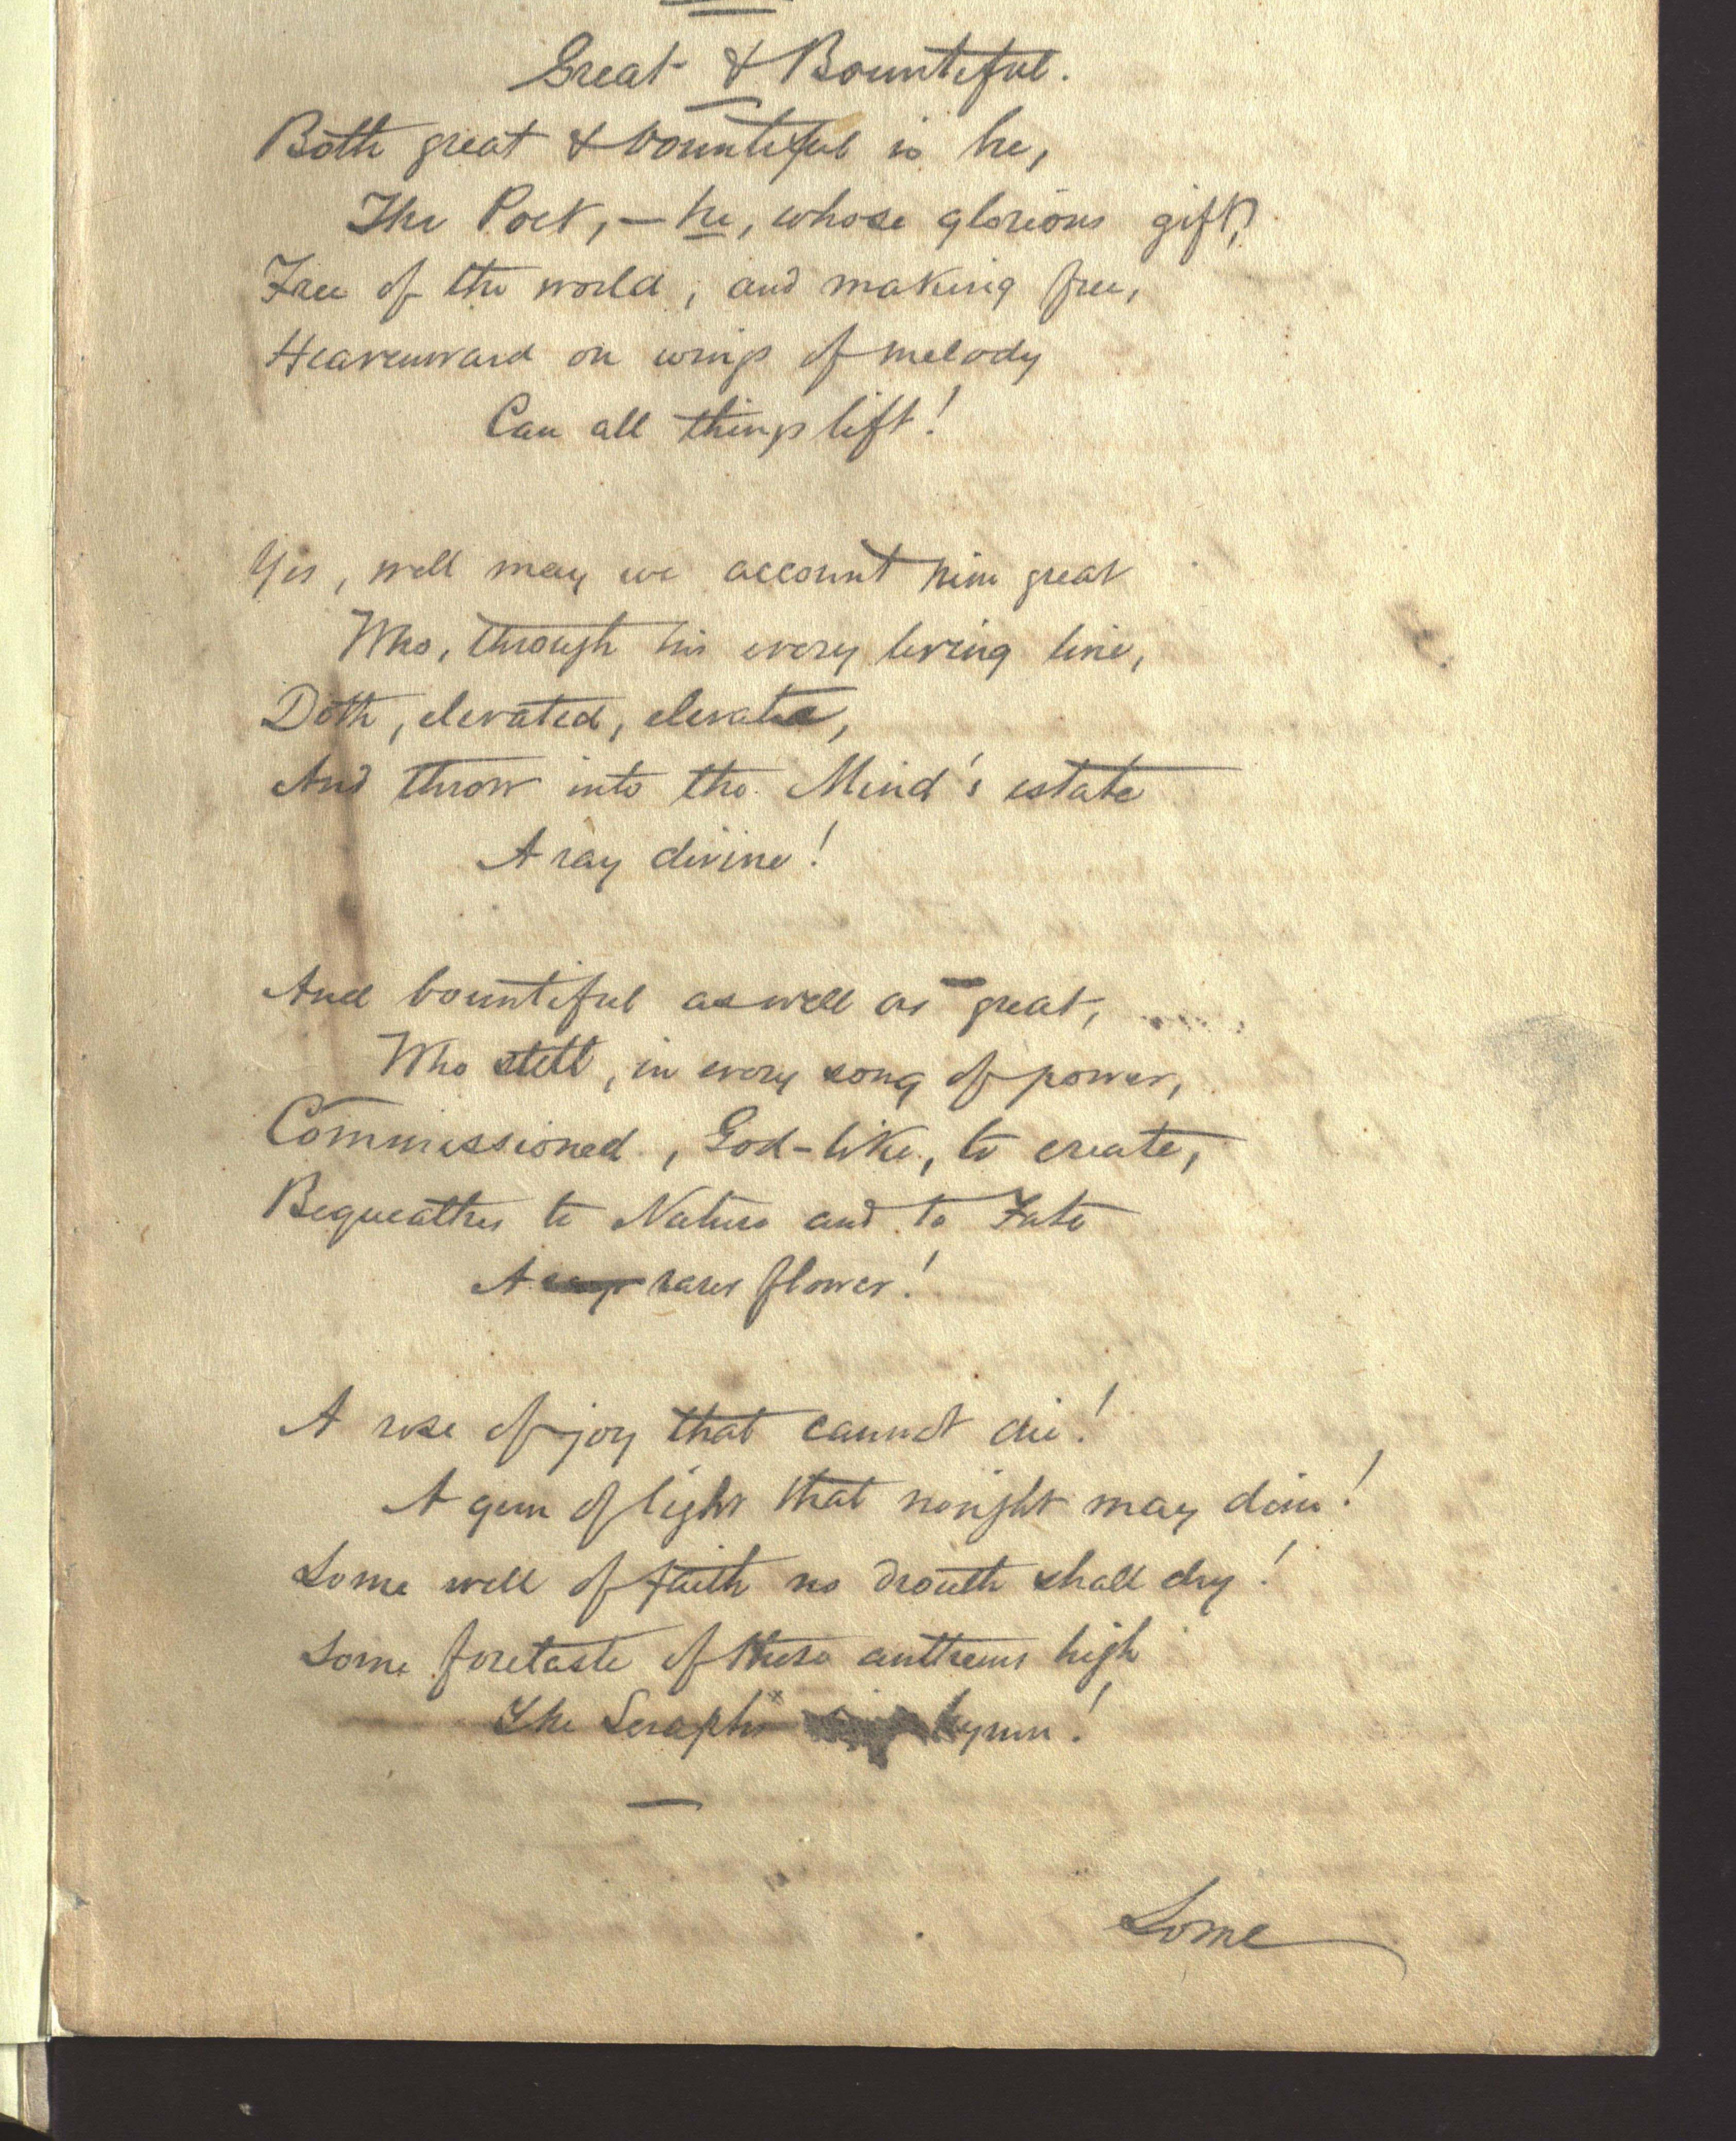 Great & Bountiful.
Both great & bountiful is he,
The Poet, — he, whose glorious gift,
Free of the world, and making free,
Heavenward on wings of melody
Can all things lift!
Yes, well may we account him great
Who, through his every living line,
Doth, elevated, elevate,
And throw into the Mind's estate
A ray divine!
And bountiful as well as great,
Who still, in every song of power,
Commissioned, God-like, to create,
Bequeathes to Nature and to Fate
A rarer flower!
A rose of joy that cannot die!
A gem of light that nought may dim!
Some well of faith no drouth shall dry!
Some foretaste of those anthems high
The Seraphs hymn!
Some